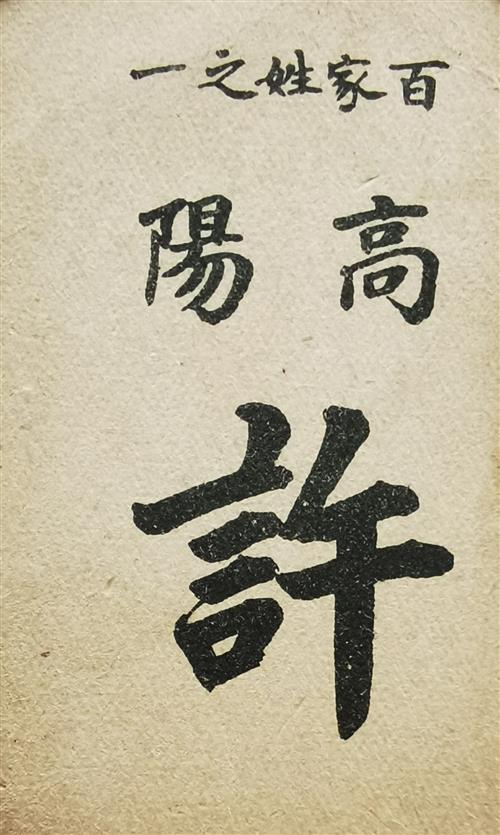 百家姓之一
高陽
許